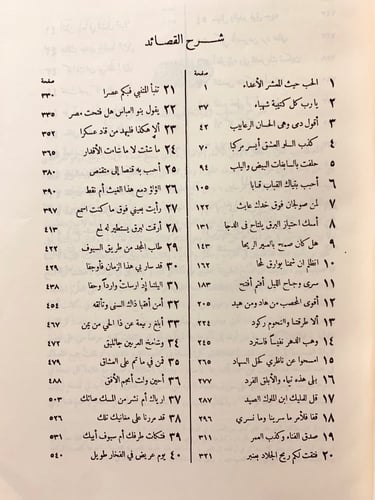 شرح القصائد
صفحة
١ الحب حيث المعشر الأعداء ١
٢ يا رب كل كتيبة شهباء ٣٧
٣ أقول دمى وهى الحسان الرعابيب ٤٢
٤ كذب السلو العشق أيسر مركبا ٧٠
٥ حلفت بالسابغات البيض واليلب ٩٤
٦ أحبب بتياك القباب قبابا ١٠٥
٧ لمن صولجان فوق خدك عابث ١٢٢
٨ أمسك احتياز البرق يلتاح فى الدجا ١٣١
٩ هل كان ضمخ بالعبير الريحا ١٤٣
١٠ انظلم ان شمنا بوارق لمحا ١٦٢
١١ سرى وجناح الليل أقتم أفتخ ١٨٣
١٢ أقوى المحصب من هاد ومن هيد ٢٠٥
١٣ ألا طرقتنا والنجوم ركود ٢٢٤
١٤ وهب الدهر نفيسا فاسترد ٢٤٥
١٥ امسحوا عن ناظرى كحل السهاد ٢٦٥
١٦ بلى هذه تيماء والأبلق الفرد ٢٧٧
١٧ قل للمليك ابن الملوك الصيد ٢٨٧
١٨ قفا فلأمر ما سرينا وما نسرى ٢٩٦
١٩ صدق الفناء وكذب العمر ٣١١
٢٠ فتقت لكم ريح الجلاد بعنبر ٣٢١
صفحة
٢١ تنبأ المتنبي فيكم عصرا ٣٣٠
٢٢ يقول بنو العباس هل فتحت مصر ٣٣٥
٢٣ ألا هكذا فليهد من قاد عسكرا ٣٥٢
٢٤ ما شئت لا ما شاءت الأقدار ٣٦٥
٢٥ أحبب به قنصا إلى متقنص ٣٨٠
٢٦ الؤلؤ دمع هذا الغيث أم نقط ٣٩٠
٢٧ رأيت بعينى فوق ما كنت اسمع ٣٩٧
٢٨ أرقت لبرق يستطير له لمع ٤١٣
٢٩ طلب المجد من طريق السيوف ٤٢٢
٣٠ قد سار بى هذا الزمان فأوجفا ٤٢٩
٣١ اليلتنا إذ ارسلت واردا وحفا ٤٣٨
٣٢ أمن أفقها ذاك السنى وتألقه ٤٥٤
٣٣ أبلغ ربيعة عن ذا الحي من يمن ٤٦٧
٣٤ وشامخ العرنين جاثليق ٤٧٢
٣٥ قمن في مأتم على العشاق ٤٧٩
٣٦ أحين ولت أنجم الأفق ٤٨٨
٣٧ أرياك أم نشر من المسك صائك ٥٠٣
٣٨ قد مررنا على مغانيك تلك ٥٢٦
٣٩ فتكات طرفك أم سيوف أبيك ٥٣١
٤٠ يوم عريض في الفخار طويل ٥٤٠